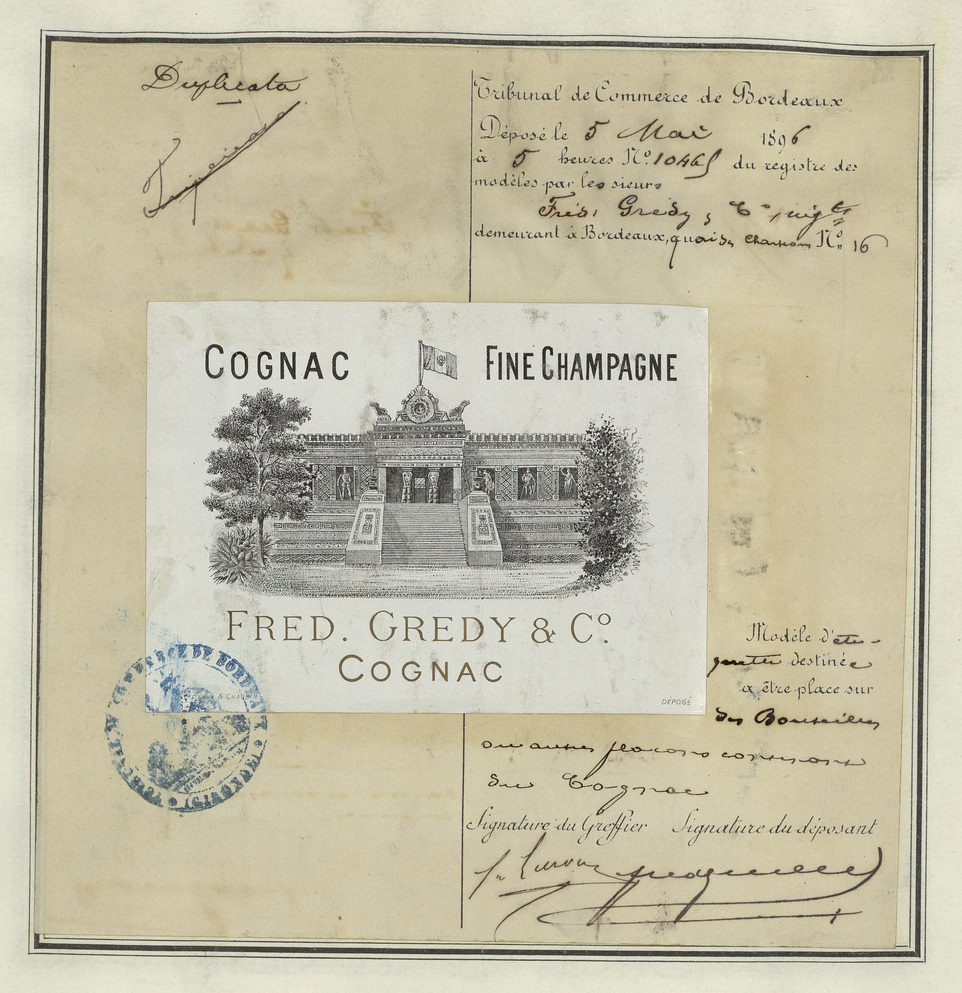 Duplicata
Tribunal de Commerce de Bordeaux
Déposé le 5 Mai 1896
à 5 heures Nº 10465 du registre des
modèles par les sieurs
Fréd. Gredy & Cº, négts
demeurant à Bordeaux, quai des Chartrons Nº 16
COGNAC FINE CHAMPAGNE
FRED. GREDY & Cº
COGNAC
DÉPOSÉ
Modèle d'éti-
quette destinée
à être place sur
des Bouteilles
ou autres flacons contenant
du Cognac
Signature du Greffier Signature du déposant
COMMERCE DE BORDEAUX
(GIRONDE)